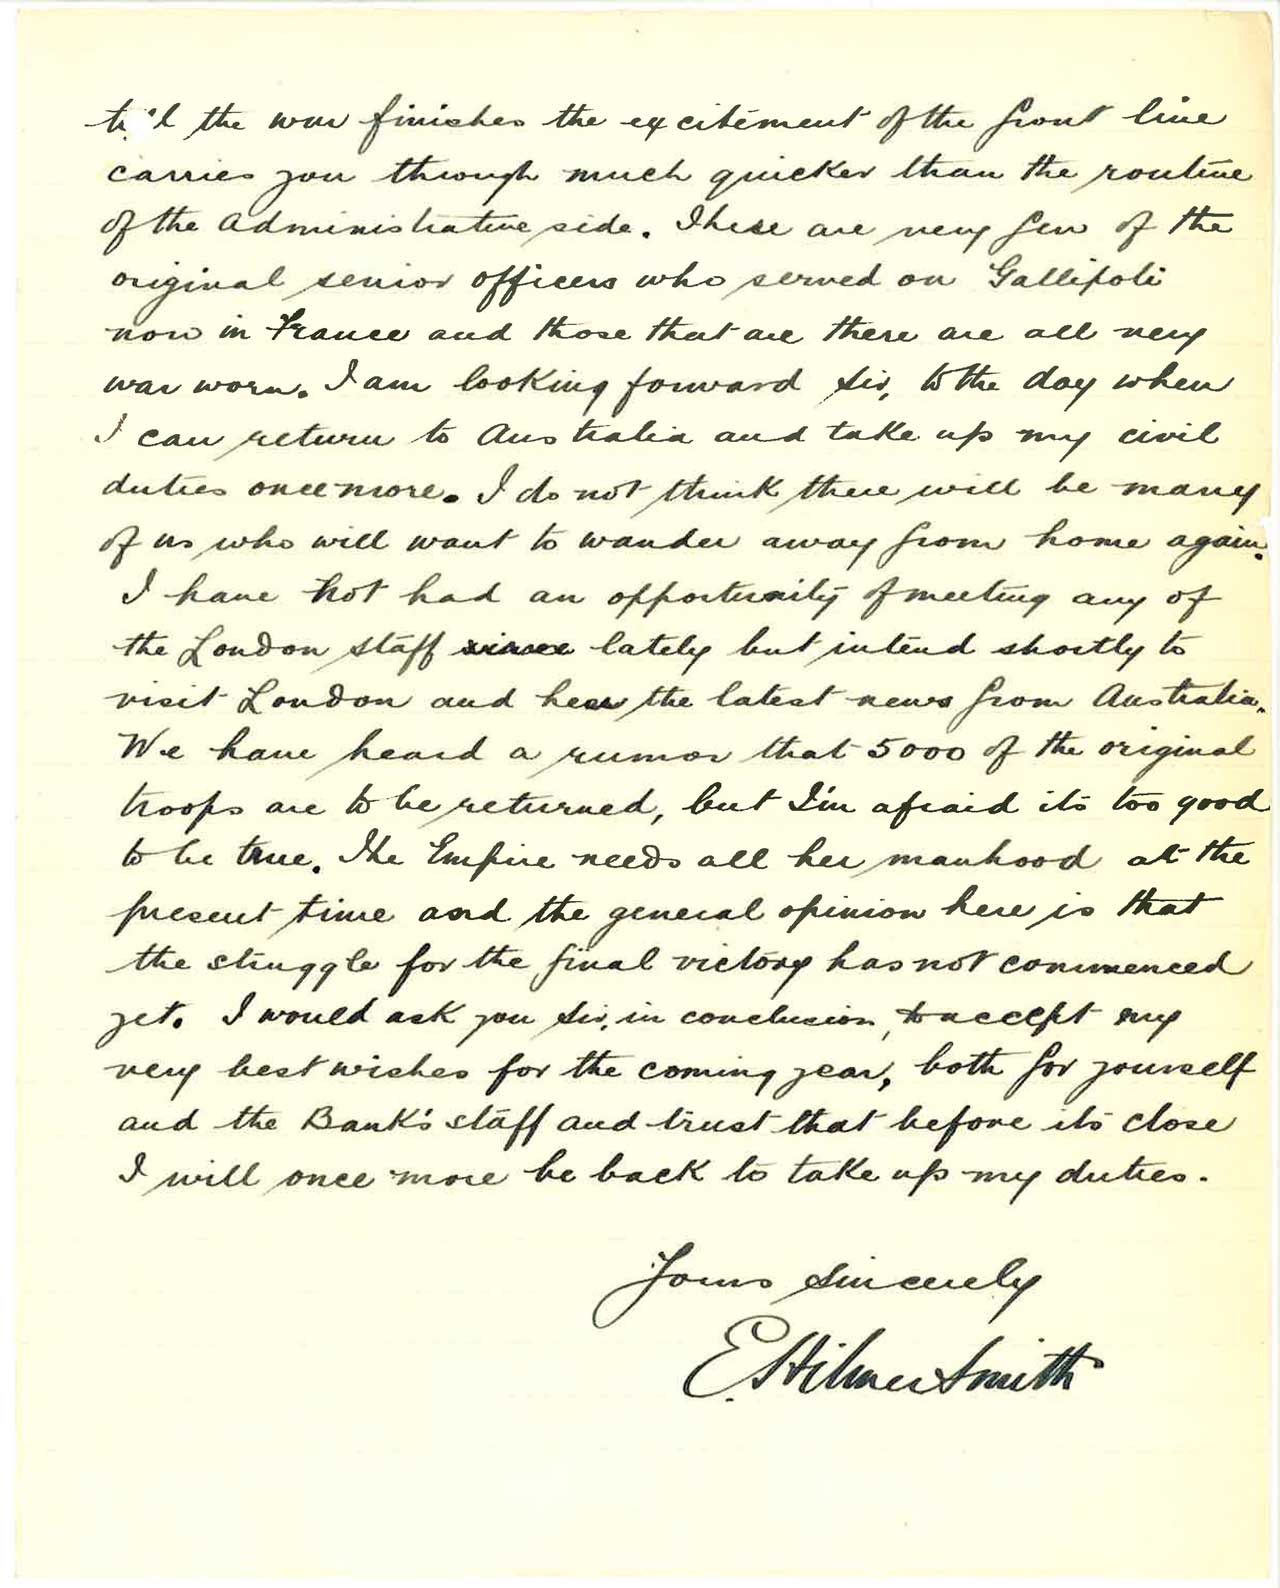 till the war finishes the excitement of the front line
carries you through much quicker than the routine
of the Administrative side. There are very few of the
original senior officers who served on Gallipoli
now in France and those that are there are all very
war worn. I am looking forward Sir, to the day when
I can return to Australia and take up my civil
duties once more. I do not think there will be many
of us who will want to wander away from home again.
I have not had an opportunity of meeting any of
the London staff since lately but intend shortly to
visit London and hear the latest news from Australia.
We have heard a rumor that 5000 of the original
troops are to be returned, but I'm afraid its too good
to be true. The Empire needs all her manhood at the
present time and the general opinion here is that
the struggle for the final victory has not commenced
yet. I would ask you Sir, in conclusion, to accept my
very best wishes for the coming year, both for yourself
and the Bank's staff and trust that before its close
I will once more be back to take up my duties.
Yours Sincerely
E. Hilmer Smith